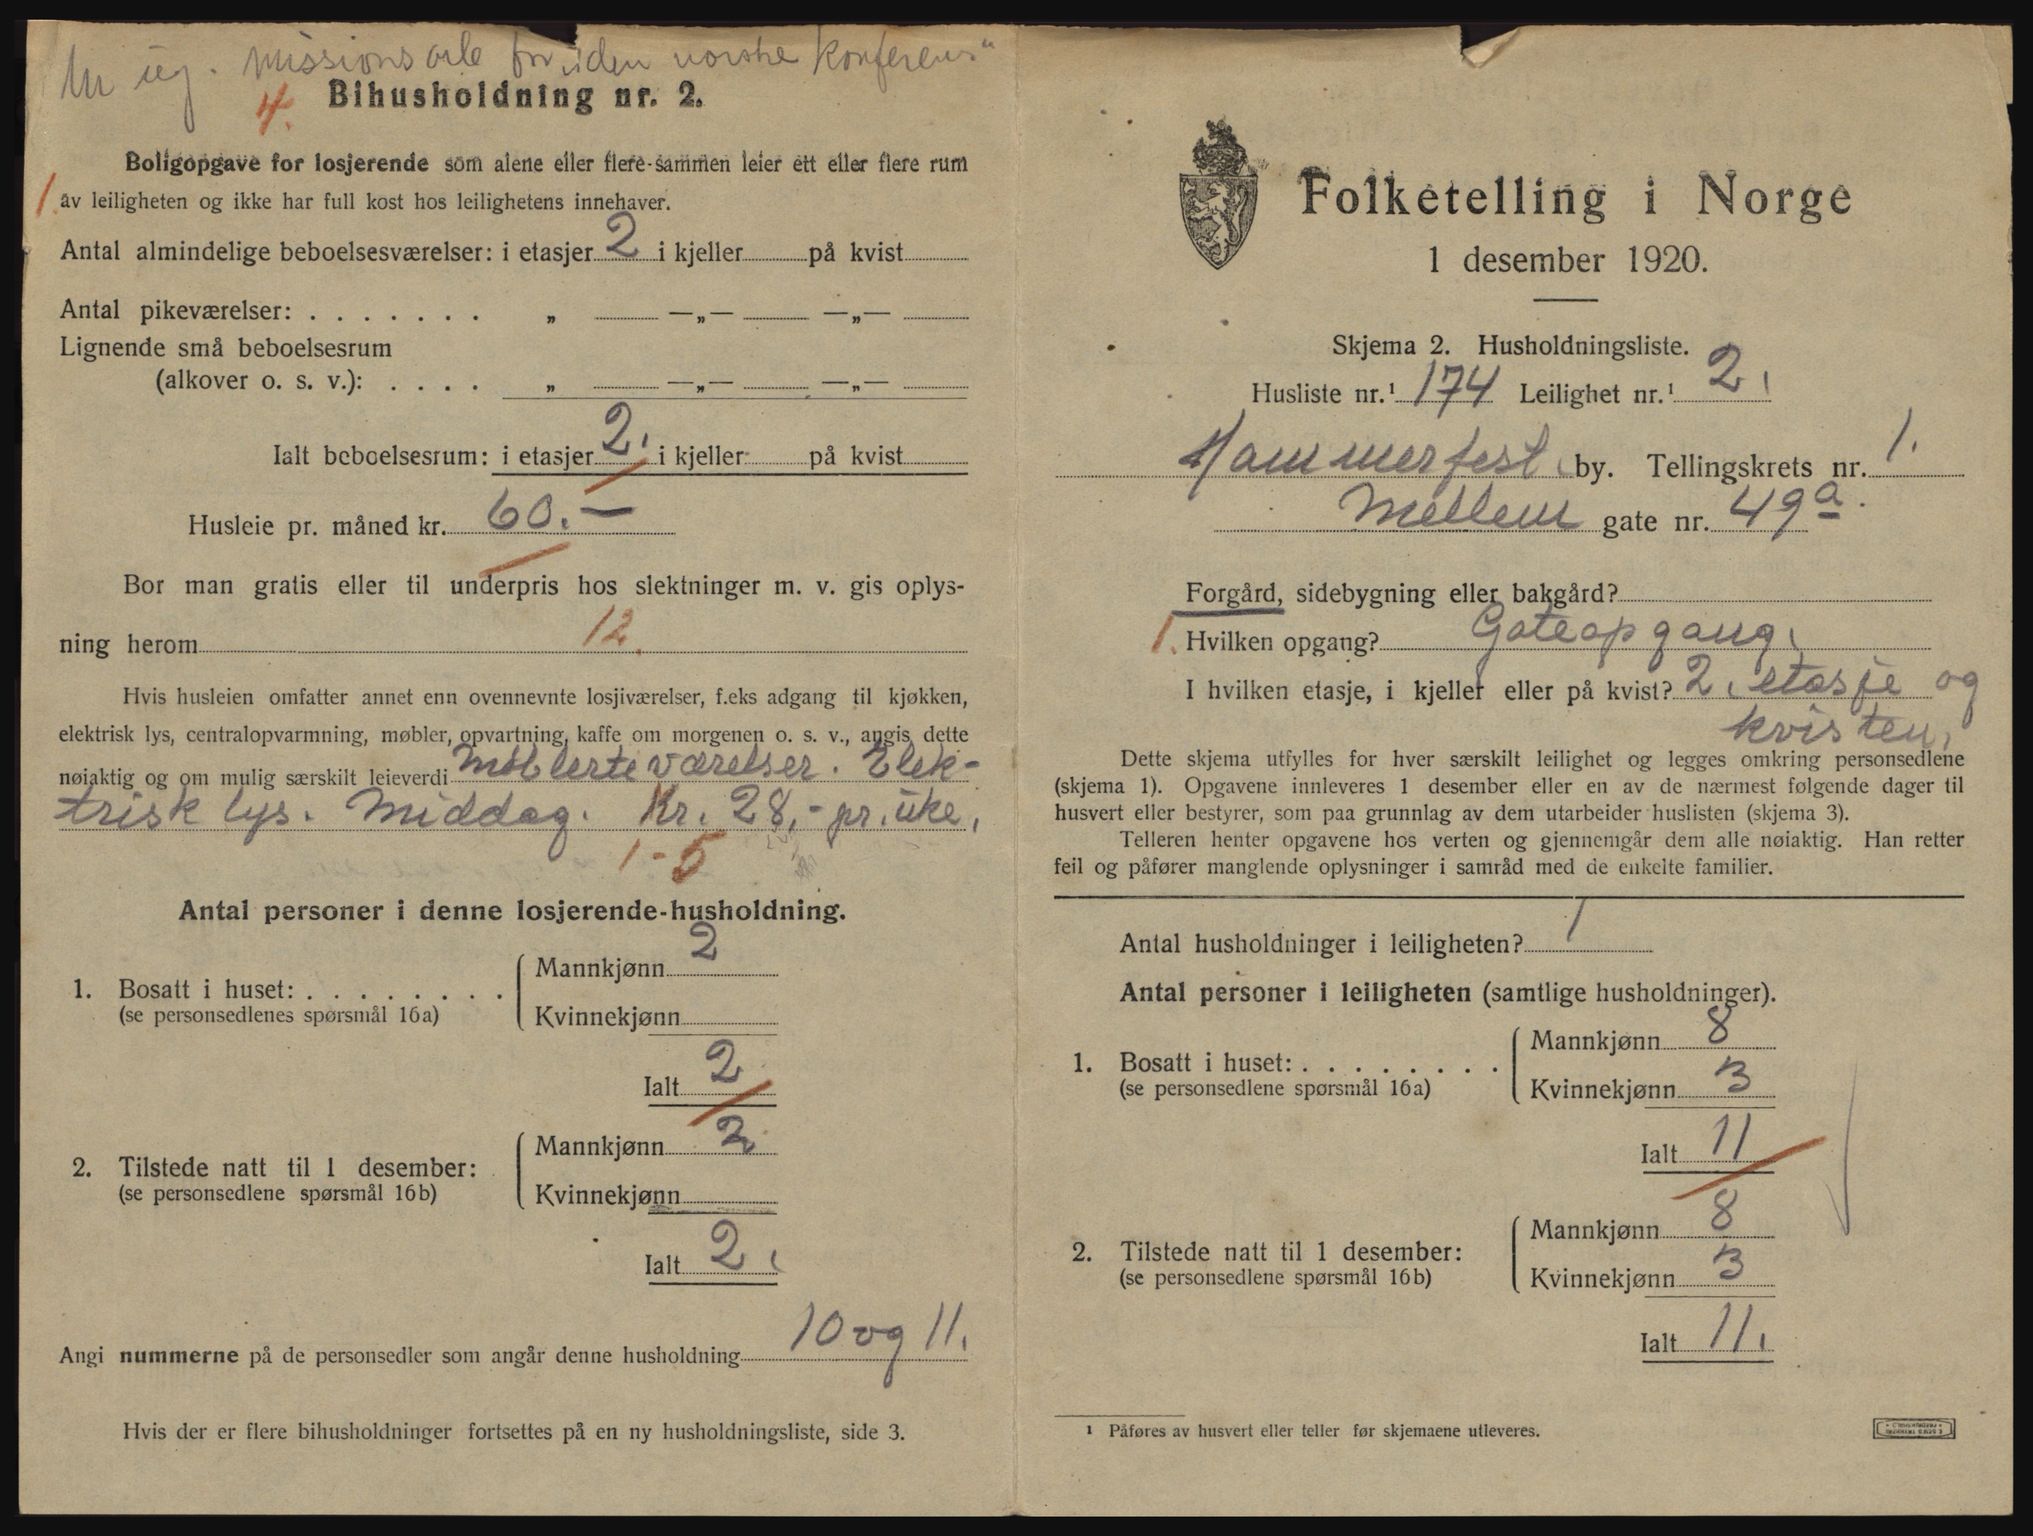 missions for "den norske Konferens"
4. Bihusholdning nr. 2.
Boligopgave for losjerende som alene eller flere sammen leier ett eller flere rum
1. av leiligheten og ikke har full kost hos leilighetens innehaver.
Antal almindelige beboelsesværelser: i etasjer 2 i kjeller på kvist
Antal pikeværelser: . . . . . . . „ —„— —„—
Lignende små beboelsesrum
(alkover o. s. v.): . . . . „ —„— —„—
Ialt beboelsesrum: i etasjer 2. i kjeller på kvist
Husleie pr. måned kr. 60.—
Bor man gratis eller til underpris hos slektninger m. v. gis oplys-
ning herom 12.
Hvis husleien omfatter annet enn ovennevnte losjiværelser, f.eks adgang til kjøkken,
elektrisk lys, centralopvarmning, møbler, opvartning, kaffe om morgenen o. s. v., angis dette
nøiaktig og om mulig særskilt leieverdi Möblerte værelser. Elek-
trisk lys. Middag. Kr. 28,- pr. uke,
1-5
Antal personer i denne losjerende-husholdning.
1. Bosatt i huset: . . . . . . . . Mannkjønn 2
(se personsedlenes spørsmål 16a) Kvinnekjønn
Ialt 2
2. Tilstede natt til 1 desember: Mannkjønn 2
(se personsedlene spørsmål 16b) Kvinnekjønn
Ialt 2.
Angi nummerne på de personsedler som angår denne husholdning 10 og 11.
Hvis der er flere bihusholdninger fortsettes på en ny husholdningsliste, side 3.
Folketelling i Norge
1 desember 1920.
Skjema 2. Husholdningsliste.
Husliste nr.¹ 174 Leilighet nr.¹ 2.
Hammerfest by. Tellingskrets nr. 1.
Mellem gate nr. 49a.
Forgård, sidebygning eller bakgård?
1. Hvilken opgang? Gateopgang.
I hvilken etasje, i kjeller eller på kvist? 2. etasje og
kvisten.
Dette skjema utfylles for hver særskilt leilighet og legges omkring personsedlene
(skjema 1). Opgavene innleveres 1 desember eller en av de nærmest følgende dager til
husvert eller bestyrer, som paa grunnlag av dem utarbeider huslisten (skjema 3).
Telleren henter opgavene hos verten og gjennemgår dem alle nøiaktig. Han retter
feil og påfører manglende oplysninger i samråd med de enkelte familier.
Antal husholdninger i leiligheten? 1
Antal personer i leiligheten (samtlige husholdninger).
1. Bosatt i huset: . . . . . . . . Mannkjønn 8
(se personsedlene spørsmål 16a) Kvinnekjønn 3
Ialt 11
2. Tilstede natt til 1 desember: Mannkjønn 8
(se personsedlene spørsmål 16b) Kvinnekjønn 3
Ialt 11.
¹ Påføres av husvert eller teller før skjemaene utleveres.